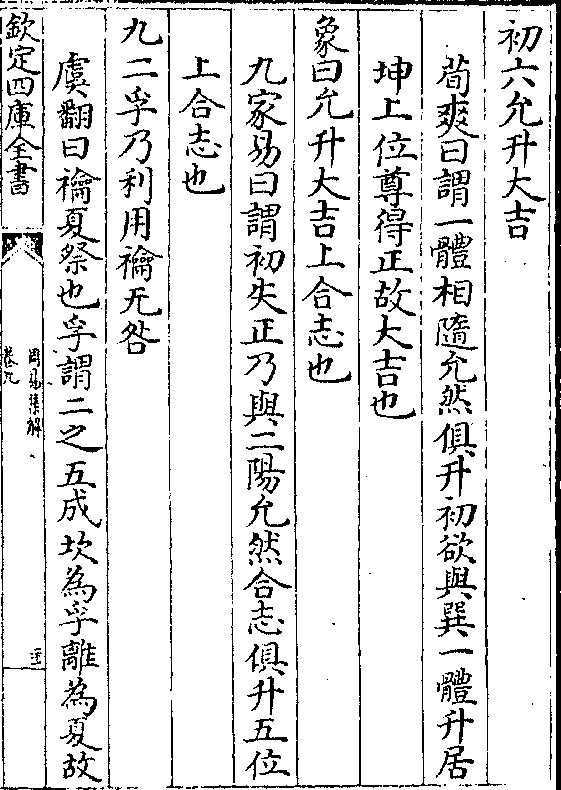 初六允升大吉
荀爽曰謂一體相隨允然俱升初欲與巽一體升居
坤上位尊得正故大吉也
象曰允升大吉上合志也
九家易曰謂初失正乃與二陽允然合志俱升五位
上合志也
九二孚乃利用禴无咎
虞翻曰禴夏祭也孚謂二之五成坎為孚離為夏故
欽定四庫全書
周易集解
卷九